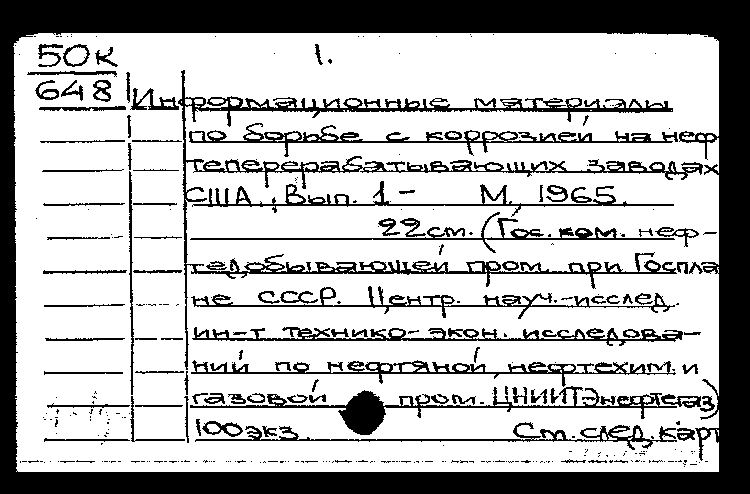 50к 1.
648 Информационные материалы
по борьбе с коррозией на неф-
теперерабатывающих заводах
США. Вып. 1- М., 1965.
22см. (Гос. ком. неф-
тедобывающей пром. при Госпла-
не СССР. Центр. науч.-исслед.
ин-т технико-экон. исследова-
ний по нефтяной, нефтехим. и
газовой пром. ЦНИИТЭнефтегаз)
100экз. См. след. карт